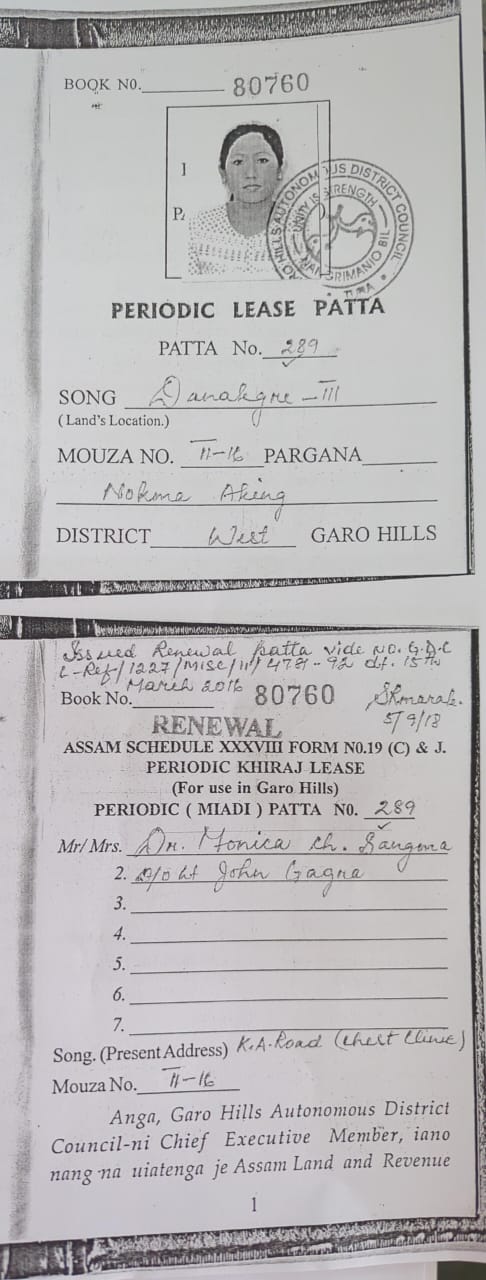 BOOK N0. 80760
I
P
GARO HILLS AUTONOMOUS DISTRICT COUNCIL
UNITY IS STRENGTH
PERIODIC LEASE PATTA
PATTA No. 289
SONG Danakgre - III
(Land's Location.)
MOUZA NO. II-16 PARGANA
Nokma Aking
DISTRICT West GARO HILLS
Issued Renewal patta vide NO. G.D.C
L-Ref/1227/Misc/II/ dt. 15th
March 2016
Book No. 80760
5/9/18
RENEWAL
ASSAM SCHEDULE XXXVIII FORM N0.19 (C) & J.
PERIODIC KHIRAJ LEASE
(For use in Garo Hills)
PERIODIC ( MIADI ) PATTA N0. 289
Mr/ Mrs. Dr. Monica Ch. Sangma
2. D/o Lt John Gagna
3.
4.
5.
6.
7.
Song. (Present Address) K.A. Road (Chest Clinic)
Mouza No. II-16
Anga, Garo Hills Autonomous District
Council-ni Chief Executive Member, iano
nang·na uiatenga je Assam Land and Revenue
1